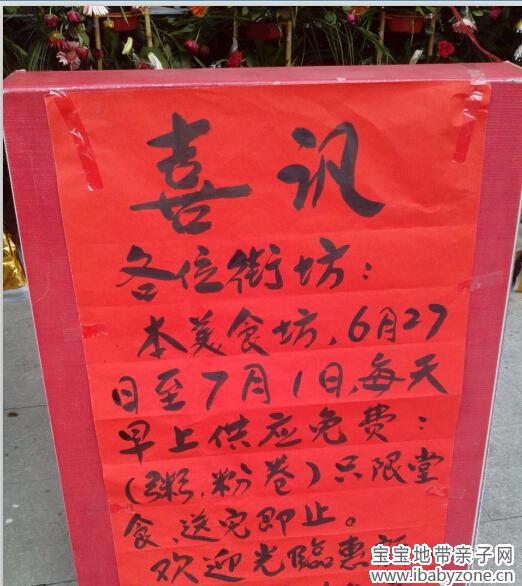 喜讯
各位街坊：
本美食坊，6月27
日至7月1日，每天
早上供应免费：
（粥、粉卷）只限堂
食、送完即止。
欢迎光臨惠
宝宝地带亲子网
www.ibabyzone.cn